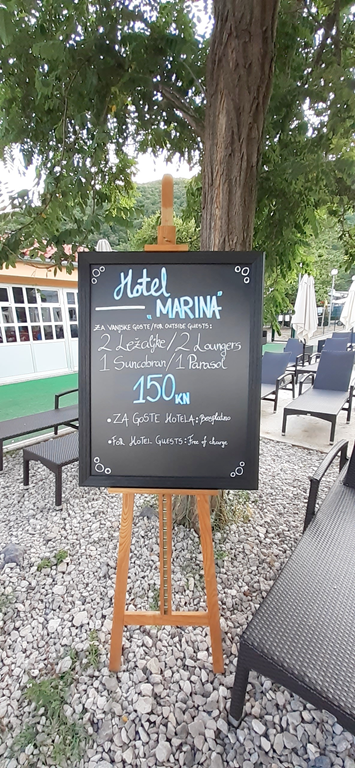 Hotel
„MARINA"
ZA VANJSKE GOSTE/FOR OUTSIDE GUESTS:
2 Ležaljke/2 Loungers
1 Suncobran/1 Parasol
150 KN
• ZA GOSTE HOTELA: Besplatno
• FOR HOTEL GUESTS: Free of charge